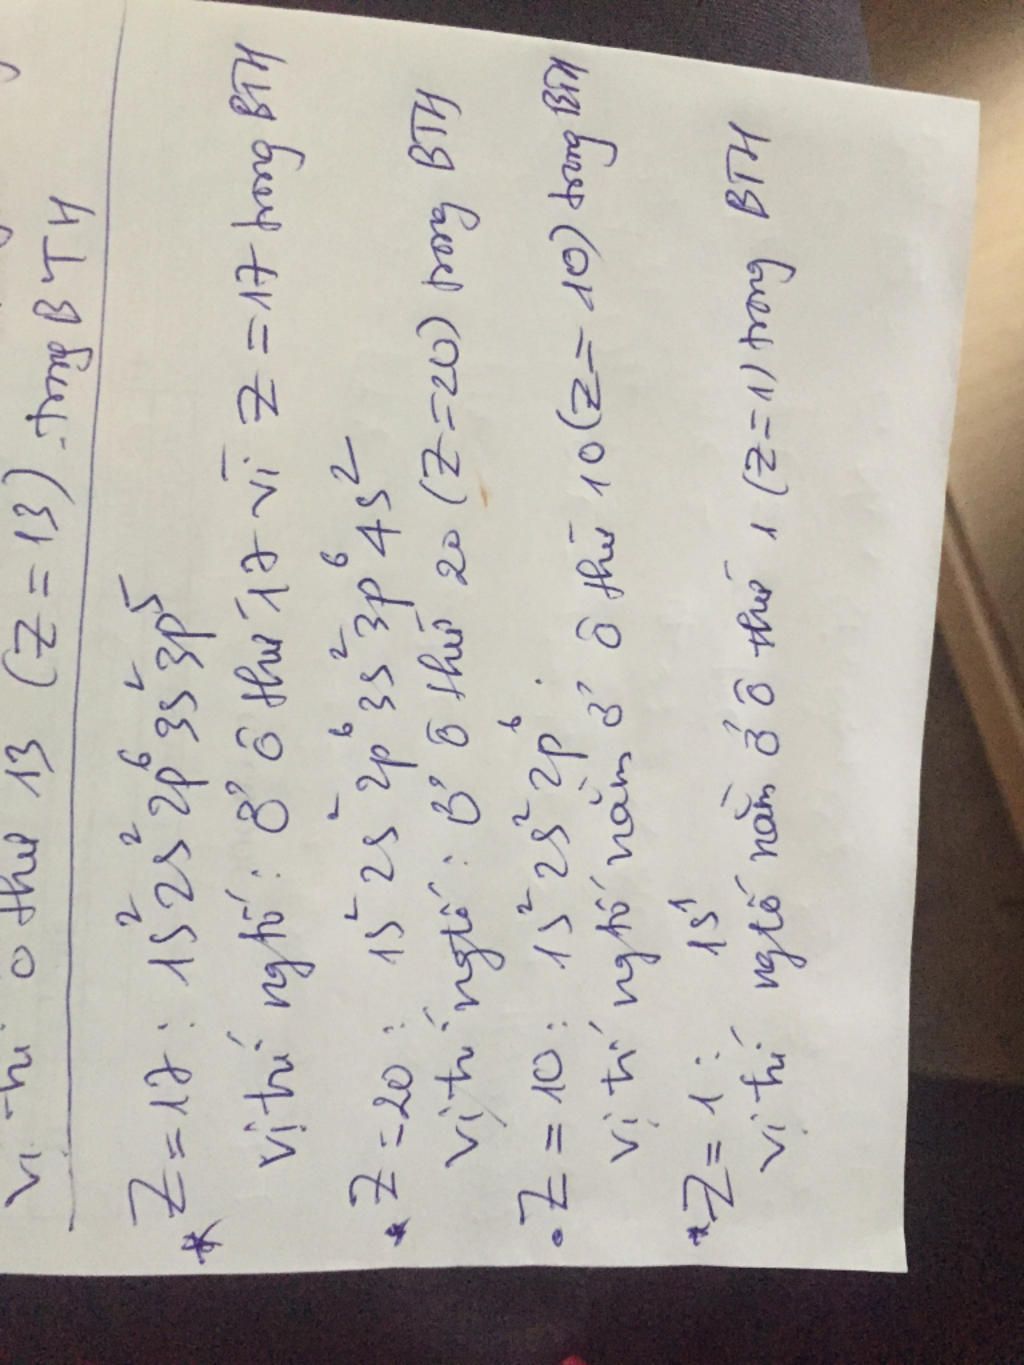 Vị trí ô thứ 13 (Z = 13) trong BTH
* Z = 17 : 1s² 2s² 2p⁶ 3s² 3p⁵
Vị trí ngtố : Ở ô thứ 17 vì Z = 17 trong BTH
* Z = 20 : 1s² 2s² 2p⁶ 3s² 3p⁶ 4s²
Vị trí ngtố : Ở ô thứ 20 (Z = 20) trong BTH
• Z = 10 : 1s² 2s² 2p⁶.
Vị trí ngtố nằm ở ô thứ 10 (Z = 10) trong BTH
* Z = 1 : 1s¹
Vị trí ngtố nằm ở ô thứ 1 (Z = 1) trong BTH